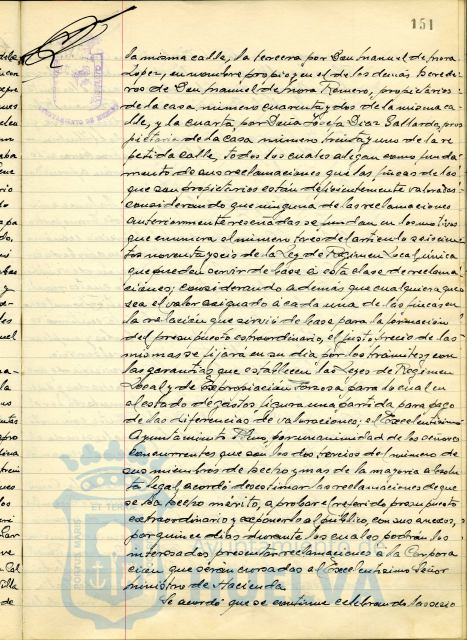 151
la misma calle, la tercera por Don Manuel de Mora
Lopez, en nombre propio y en el de los demás herede-
ros de Don Manuel de Mora Romero, propietarios
de la casa, número cuarenta y dos de la misma ca-
lle, y la cuarta, por Doña Josefa Diaz Gallardo, pro-
pietaria de la casa número treinta y uno de la re
petida calle, todos los cuales alegan como funda-
mento de sus reclamaciones que las fincas de las
que son propietarios están deficientemente valoradas;
considerando que ninguna de las reclamaciones
anteriormente reseñadas se fundan en los motivos
que enumera el número tres del articulo seiscien-
tos noventa y seis de la Ley de Régimen Local, única
que pueden servir de base a esta clase de reclama-
ciones; considerando además que cualquiera que
sea el valor asignado a cada una de las fincas en
la relación que sirvió de base para la formación
del presupuesto extraordinario, el justo precio de las
mismas se fijará en su dia por los trámites y con
las garantías que establecen las Leyes de Régimen
Local y de Expropiación Forzosa, para lo cual en
el estado de gastos figura una partida para pago
de las diferencias de valoraciones; el Excelentísimo
Ayuntamiento Pleno, por unanimidad de los señores
concurrentes que son los dos tercios del número de
sus miembros de hecho y mas de la mayoria absolu
ta legal, acordó desestimar las reclamaciones de que
se ha hecho mérito, aprobar el referido presupuesto
extraordinario y exponerlo al público, con sus anexos,
por quince dias durante los cuales podrán los
interesados presentar reclamaciones a la Corpora
ción que serán cursadas al Excelentísimo Señor
Ministro de Hacienda.
Se acordó que se continue celebrando la sesio